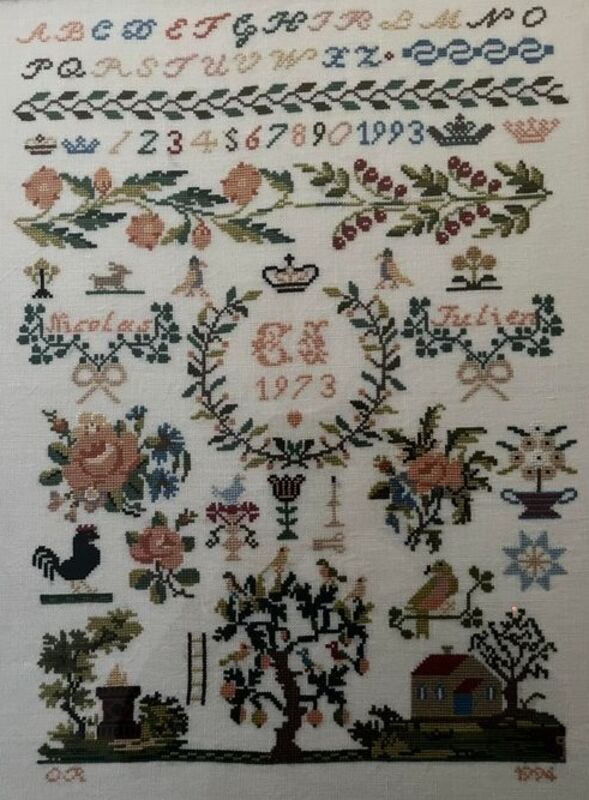 A B C D E F G H I K L M N O
P Q R S T U V W X Z
1 2 3 4 5 6 7 8 9 0 1993
Nicolas
Julien
1973
OR
1994